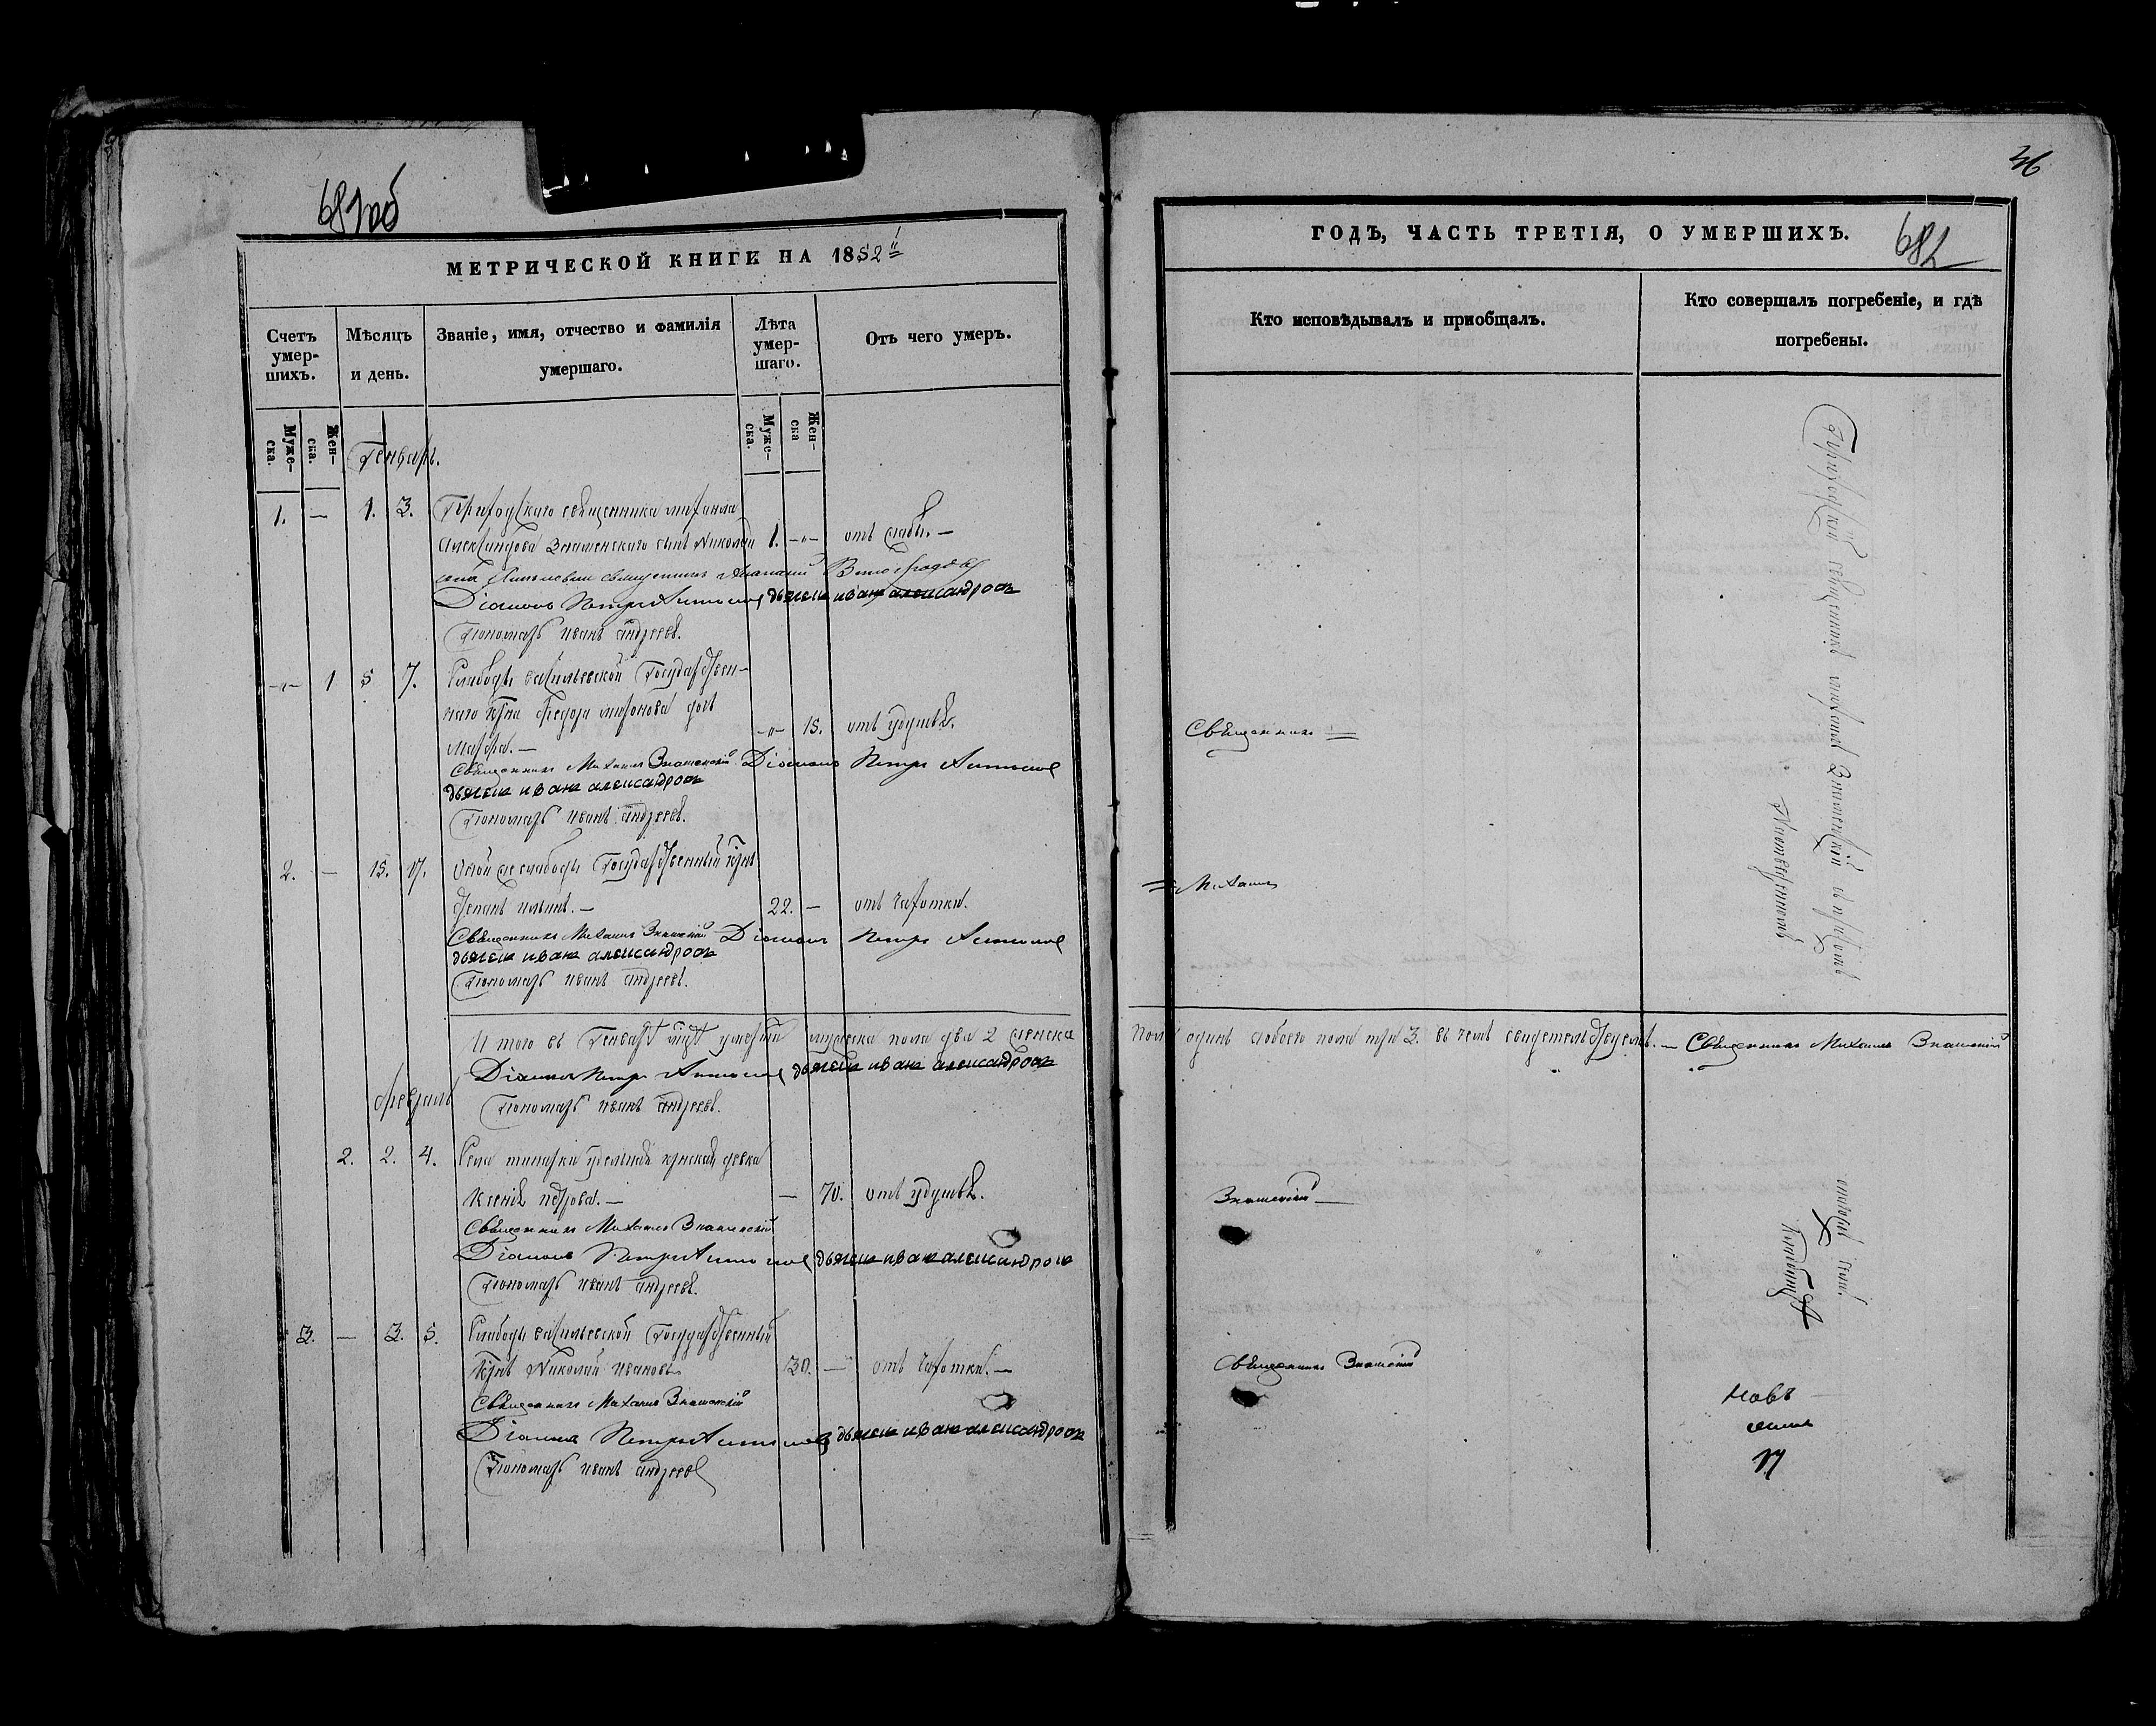 681об
МЕТРИЧЕСКОЙ КНИГИ НА 1852й
Счетъ умер-шихъ.
Мѣсяцъ и день.
Званіе, имя, отчество и фамилія умершаго.
Лѣта умер-шаго.
Отъ чего умеръ.
Муже-ска.
Жен-ска.
Муже-ска.
Жен-ска
Генварь.
1. — 1. 3. Приходскаго священника михаила
Александрова Знаменскаго сынъ Николай 1. -"- отъ слаб. —
священникъ Виноградовъ
Діаконъ Петръ Антонов дьячекъ иванъ александровъ
Пономарь иванъ андреевъ.
-"- 1 5 7. Слабоды васильевской Государствен-
наго кр̃на федора миронова дочь
марфа. — -"- 15. отъ удушья.
Священникъ Михаилъ Знаменскій Діаконъ Петръ Антонов
дьячекъ иванъ александровъ
Пономарь иванъ андреевъ.
2. — 15. 17. Оной же слабоды Государственный кр̃нъ
степанъ ильинъ. — 22. — отъ чахотки.
Священникъ Михаилъ Знаменскій Діаконъ Петръ Антонов
дьячекъ иванъ александровъ
Пономарь иванъ андреевъ.
И того въ Генварѣ умерши мужеска пола два 2 женска
Діаконъ Петръ Антонов дьячекъ иванъ александровъ
Пономарь иванъ андреевъ.
февраль
2. 2. 4. Села удельная девка
Ксенія петрова. — — 70. отъ удушья.
Священникъ Михаилъ Знаменскій
Діаконъ Петръ Антонов дьячекъ иванъ александровъ
Пономарь иванъ андреевъ.
3. — 3. 5. Слабоды васильевской Государственный
кр̃нъ Николай ивановъ 30. — отъ чахотки. —
Священникъ Михаилъ Знаменскій
Діаконъ Петръ Антонов дьячекъ иванъ александровъ
Пономарь иванъ андреевъ
36
682
ГОДЪ, ЧАСТЬ ТРЕТІЯ, О УМЕРШИХЪ.
Кто исповѣдывалъ и пріобщалъ.
Кто совершалъ погребеніе, и гдѣ погребены.
Священникъ =
= Михаилъ
Приходскій священникъ михаилъ Знаменскій съ причтомъ
пола одинъ обоего пола три 3. въ чемъ свидетельствуемъ. — Священникъ Михаилъ Знаменскій
Знаменскій —
Священникъ Знаменскій